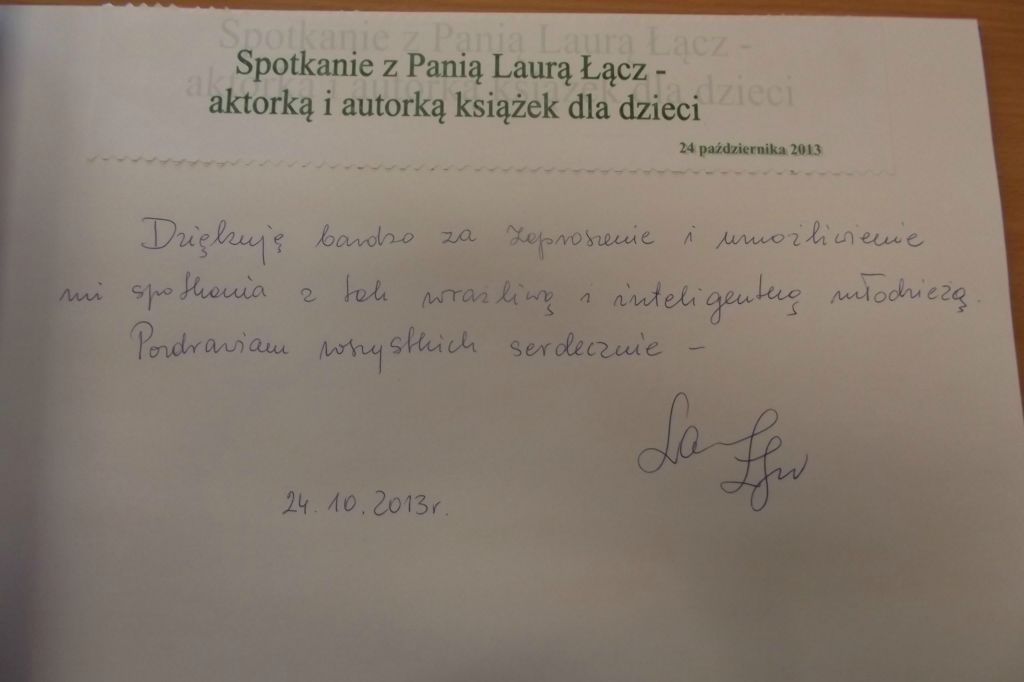 Spotkanie z Panią Laurą Łącz -
aktorką i autorką książek dla dzieci
24 października 2013
Dziękuję bardzo za zaproszenie i umożliwienie
mi spotkania z tak wrażliwą i inteligentną młodzieżą.
Pozdrawiam wszystkich serdecznie –
24.10.2013r.